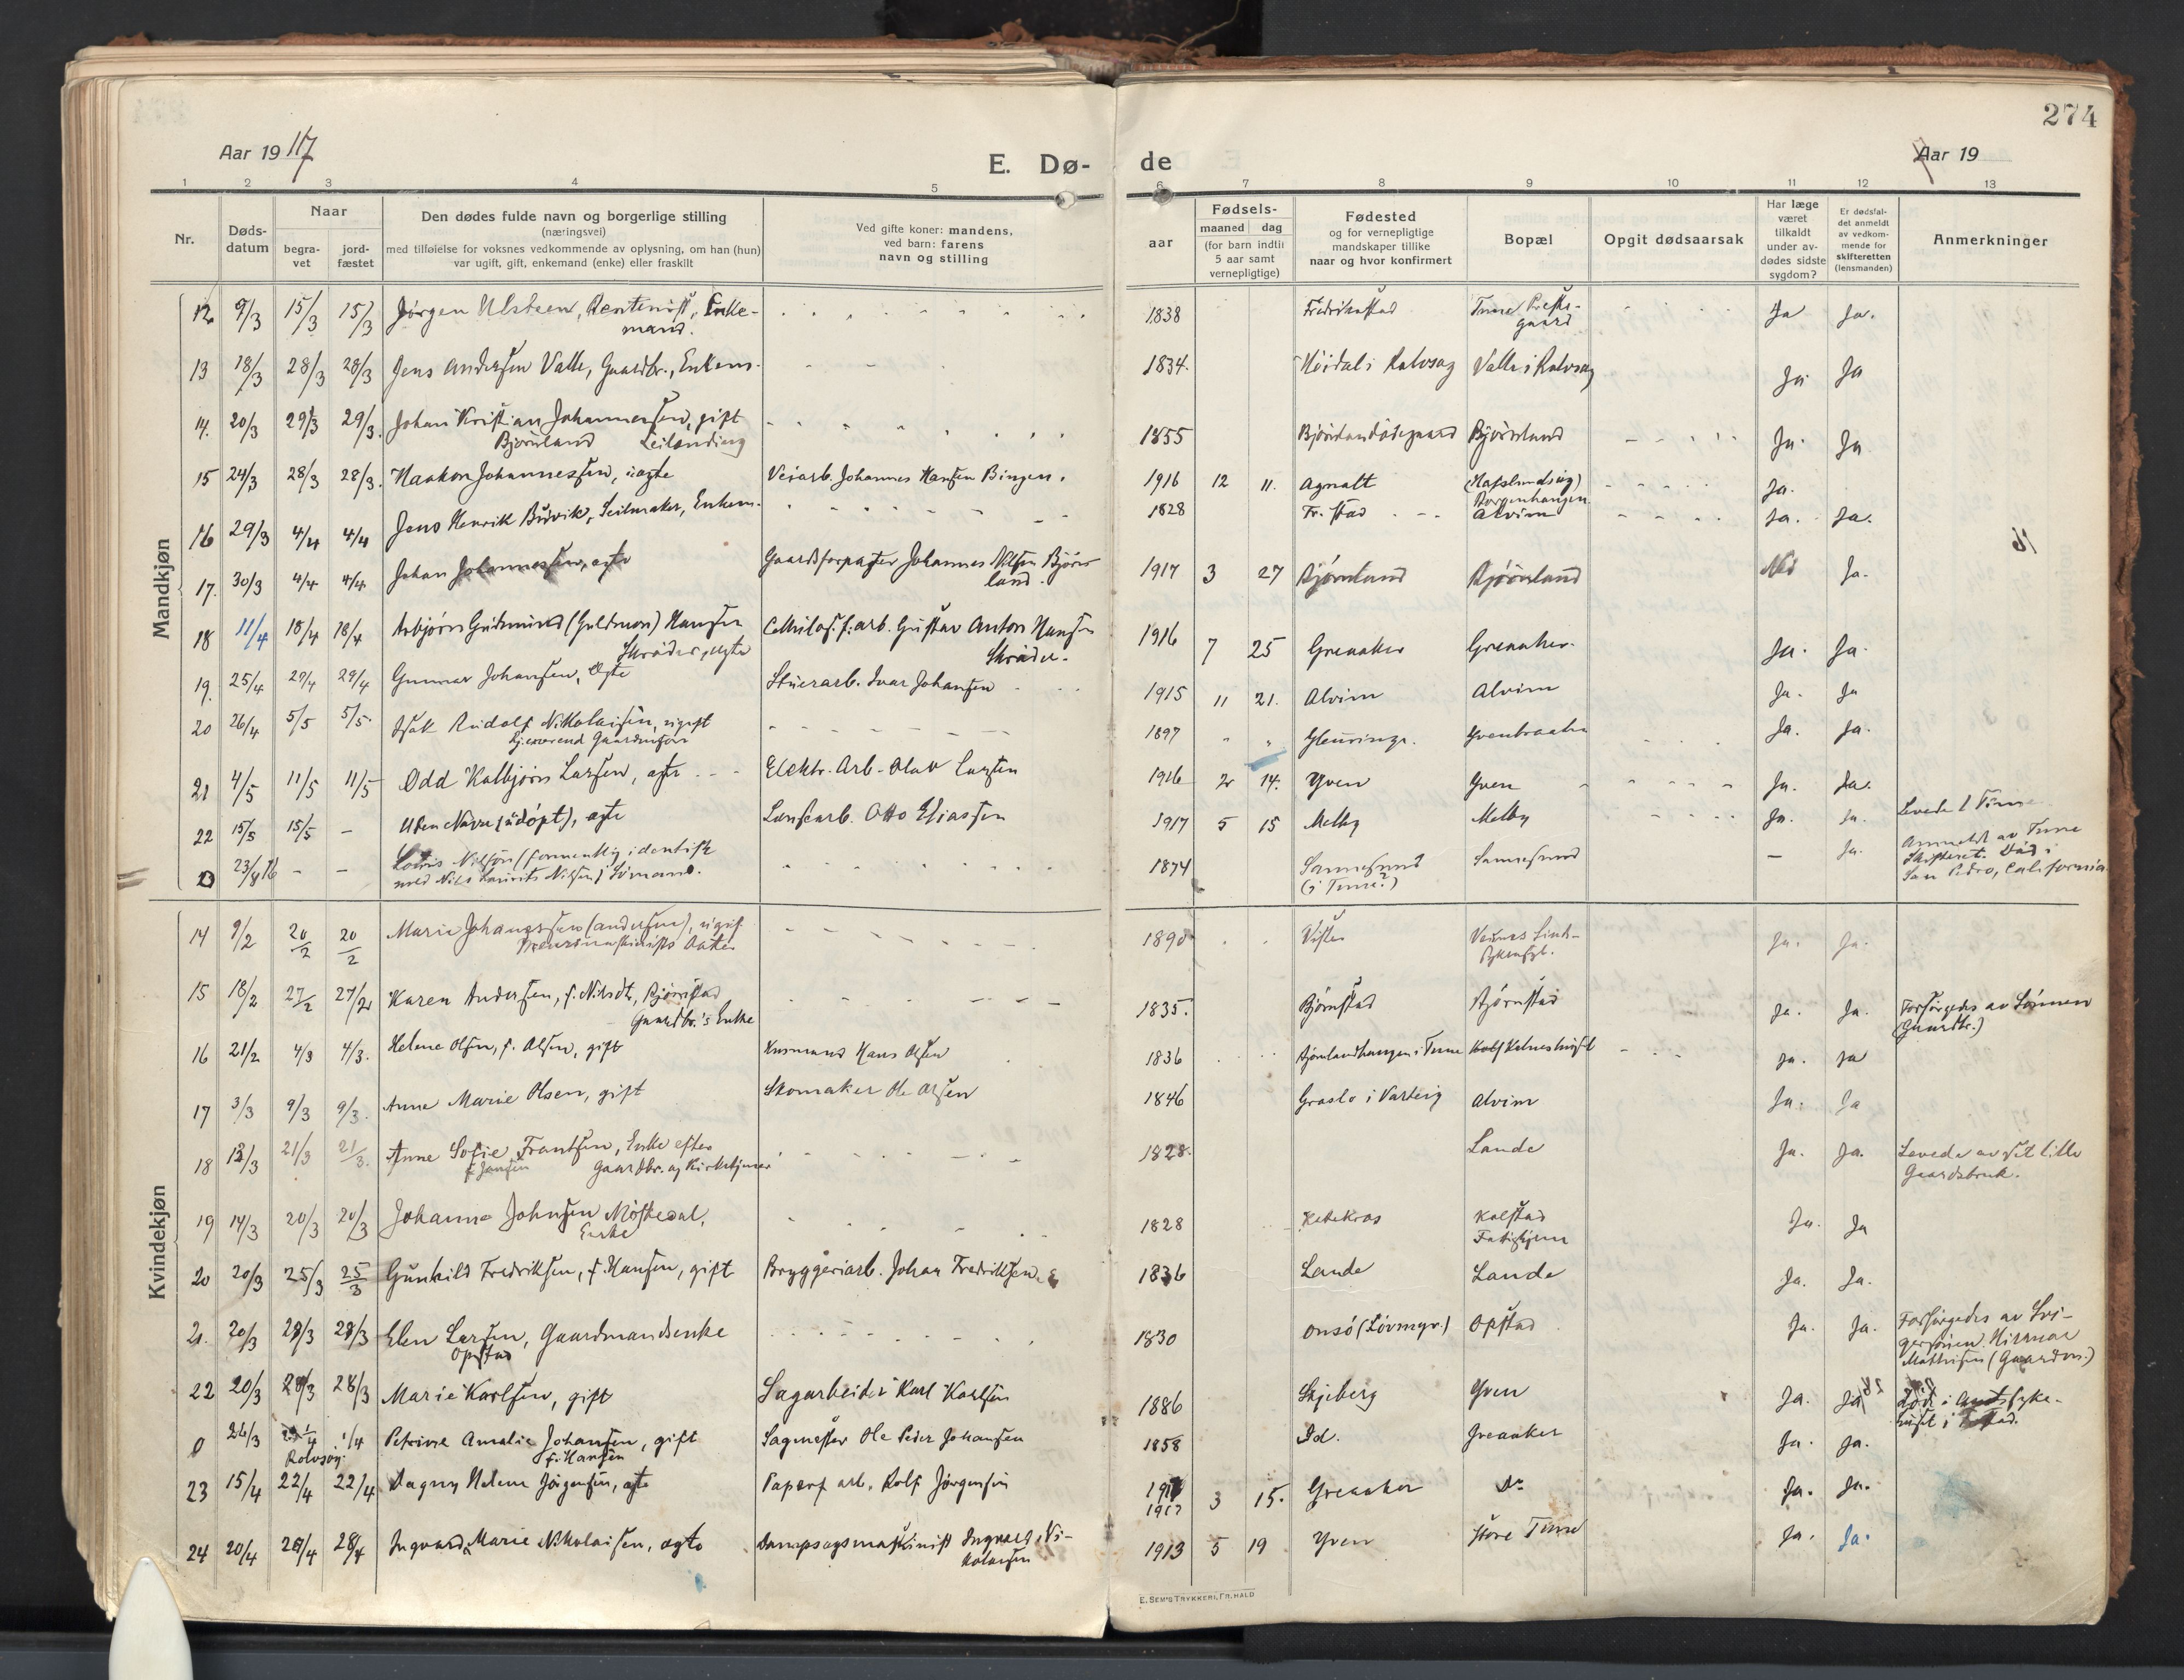 274
Aar 1917
E. Dø-
de
Aar 19
1 2 3 4 5 6 7 8 9 10 11 12 13
Nr.
Døds-
datum
Naar
begra-
vet
jord-
fæstet
Den dødes fulde navn og borgerlige stilling
(næringsvei)
med tilføielse for voksnes vedkommende av oplysning, om han (hun)
var ugift, gift, enkemand (enke) eller fraskilt
Ved gifte koner: mandens,
ved barn: farens
navn og stilling
Fødsels-
aar
maaned dag
(for barn indtil
5 aar samt
vernepligtige)
Fødested
og for vernepligtige
mandskaper tillike
naar og hvor konfirmert
Bopæl
Opgit dødsaarsak
Har læge
været
tilkaldt
under av-
dødes sidste
sygdom?
Er dødsfal-
det anmeldt
av vedkom-
mende for
skifteretten
(lensmanden)
Anmerkninger
Mandkjøn
12 9/3 15/3 15/3 Jørgen Ulsteen, Rentenist, Enke- 1838 Fredrikstad Tune Preste- Ja Ja.
mand. gaard
13 18/3 28/3 28/3 Jens Andersen Valle, Gaardbr., Enkem. 1834. i Rolvsøy Valle i Rolvsøy Ja Ja
14. 20/3 29/3 29/3. Johan Kristian Johannessen, gift 1855 Bjørnland Ja. Ja
Bjørnland Leilending
15 24/3 28/3 28/3. Haakon Johannessen, uægte Veiarb. Johannes Hansen Bingen. 1916 12 11. Agnalt (Hafslundsøy) Ja.
Borgenhaugen
16 29/3 4/4 4/4 Jens Henrik Buvik, Seilmaker, Enkem. 1828 Fr.stad Alvim Ja. Ja.
17. 30/3 4/4 4/4 Johan Johannessen, ægte Gaardsforpagter Johannes Nilsen Bjørn- 1917 3 27 Bjørnland Bjørnland Nei Ja.
land.
18 11/4 18/4 18/4 Asbjørn Gudmund (Guldmon) Hansen Cellulosef.arb. Gustav Anton Hansen 1916 7 25 Greaaker Greaaker. Ja. Ja.
Skrøder, ægte Skrøder.
19. 25/4 29/4 29/4 Gunnar Johansen, Ægte Stuerarb. Ivar Johansen 1915 11 21. Alvim Alvim Ja. Ja
20 26/4 5/5 5/5. Isak Rudolf Nikolaisen, ugift 1897 Yvenbraaten Ja. Ja.
Hjemværend Gaardmsøn
21 4/5 11/5 11/5 Odd Kolbjørn Larsen, ægte Elektr. Arb. Olav Larsen 1916 2 14. Yven Yven Ja. Ja.
22 15/5 15/5 - Uten Navn (udøpt), ægte Lensearb. Otto Eliassen 1917 5 15 Melby Melby Ja. Ja. Levede 1 Time
0 23/8 16 - - Lowis Nilsøn (formentlig identisk 1874 Sannesund Sannesund - Ja. Anmeldt av Tune
med Nils Laurits Nilsen) Sømand. (i Tune?) Skifteret. Død i
San Pedro, California
Kvindekjøn
14 9/2 20/2 20/2 Marie Johanessen (Andersen), ugift 1890 Visten Ja. Ja.
Datter
15 18/2 27/2 27/2 Karen Andersen, f. Nilsdt, Bjørnstad 1835. Bjørnstad Bjørnstad Ja. Ja. Forsørgedes av Sønnen
Gaardbr.'s Enke (Gaardbr.)
16 21/2 4/3 4/3. Helene Olsen, f. Olsen, gift Husmand Hans Olsen 1836 Bjørnlandhaugen i Tune Ja. Ja
17 3/3 9/3 9/3. Anne Marie Olsen, gift Skomaker Ole Olsen 1846 Graslo i Varteig Alvim Ja. Ja
18 12/3 21/3 21/3. Anne Sofie Frantsen, Enke efter 1828. Lande Ja. Ja. Levede av sit lille
f. Jensen Gaardbr. og Kirketjener Gaardsbruk.
19 14/3 20/3 20/3 Johanne Johnsen Møstedal, 1828 Kalstad Ja. Ja
Enke Fattighjem
20 20/3 25/3 25/3 Gunhild Fredriksen, f. Hansen, gift Bryggeriarb. Johan Fredriksen 1836 Lande Lande Ja. Ja.
21. 20/3 28/3 28/3 Elen Larsen, Gaardmandsenke 1830 Onsø Opstad Ja. Ja. Forsørgedes av Svi-
Opstad gersønnen Hilmar
Mathisen (Gaardm.)
22 20/3 28/3 28/3 Marie Karlsen, gift Sagarbeider Karl Karlsen 1886 Skjeberg Yven Ja. Ja Død i Amtssyke-
huset i
0 26/3 1/4 1/4 Petrine Amalie Johansen, gift Sagmester Ole Peder Johansen 1858 Id. Greaaker Ja. Ja.
Rolvsøy. f. Hansen
23 15/4 22/4 22/4 Dagny Helene Jørgensen, ægte Papirf arb. Rolf Jørgensen 1917 3 15. Greaaker Do Ja. Ja.
24 20/4 28/4 28/4 Ingvarda Marie Nikolaisen, ægte Dampsagsmaskinist Ingvald Ni- 1913 5 19 Yven Store Tune Ja. Ja.
kolaisen
E. SEM'S TRYKKERI, FR.HALD